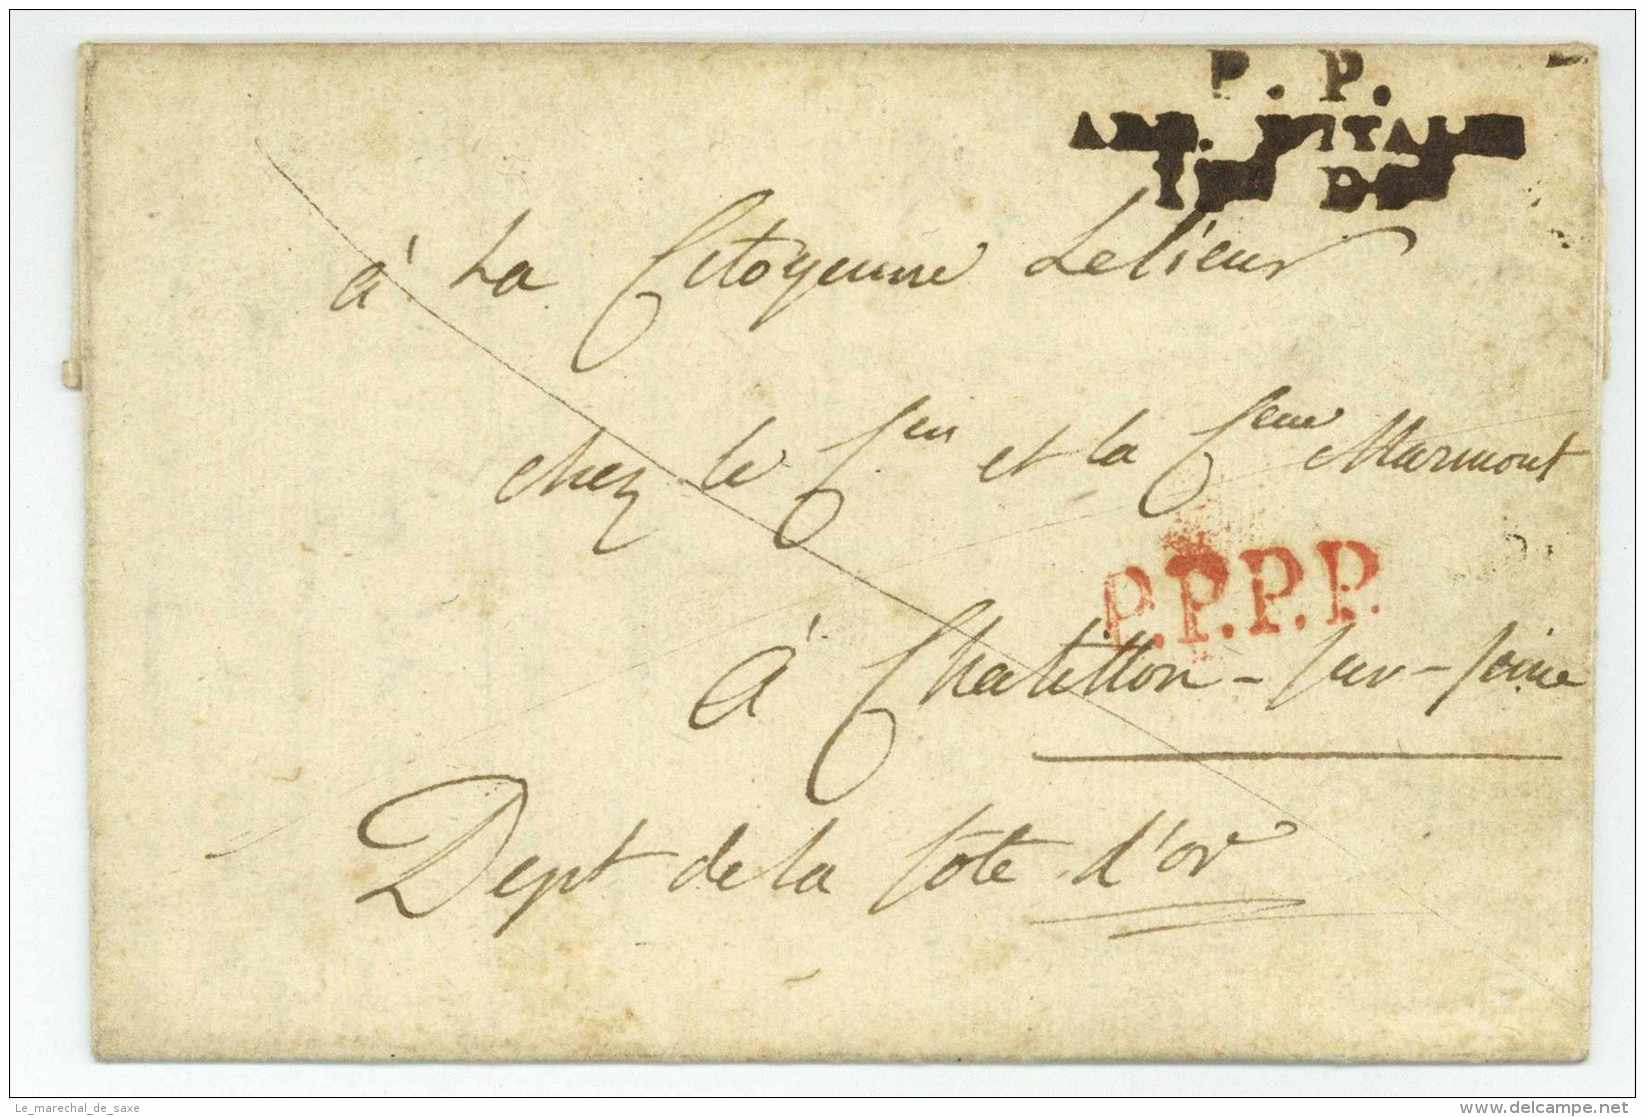 P. P.
ARM. D'ITALIE
à La Citoyenne Lelieur
chez le Cen et la Cene Marmont
P.P.P.P.
à Chatillon-sur-seine
Dept de la Cote d'or
Le_marechal_de_saxe
delcampe.net